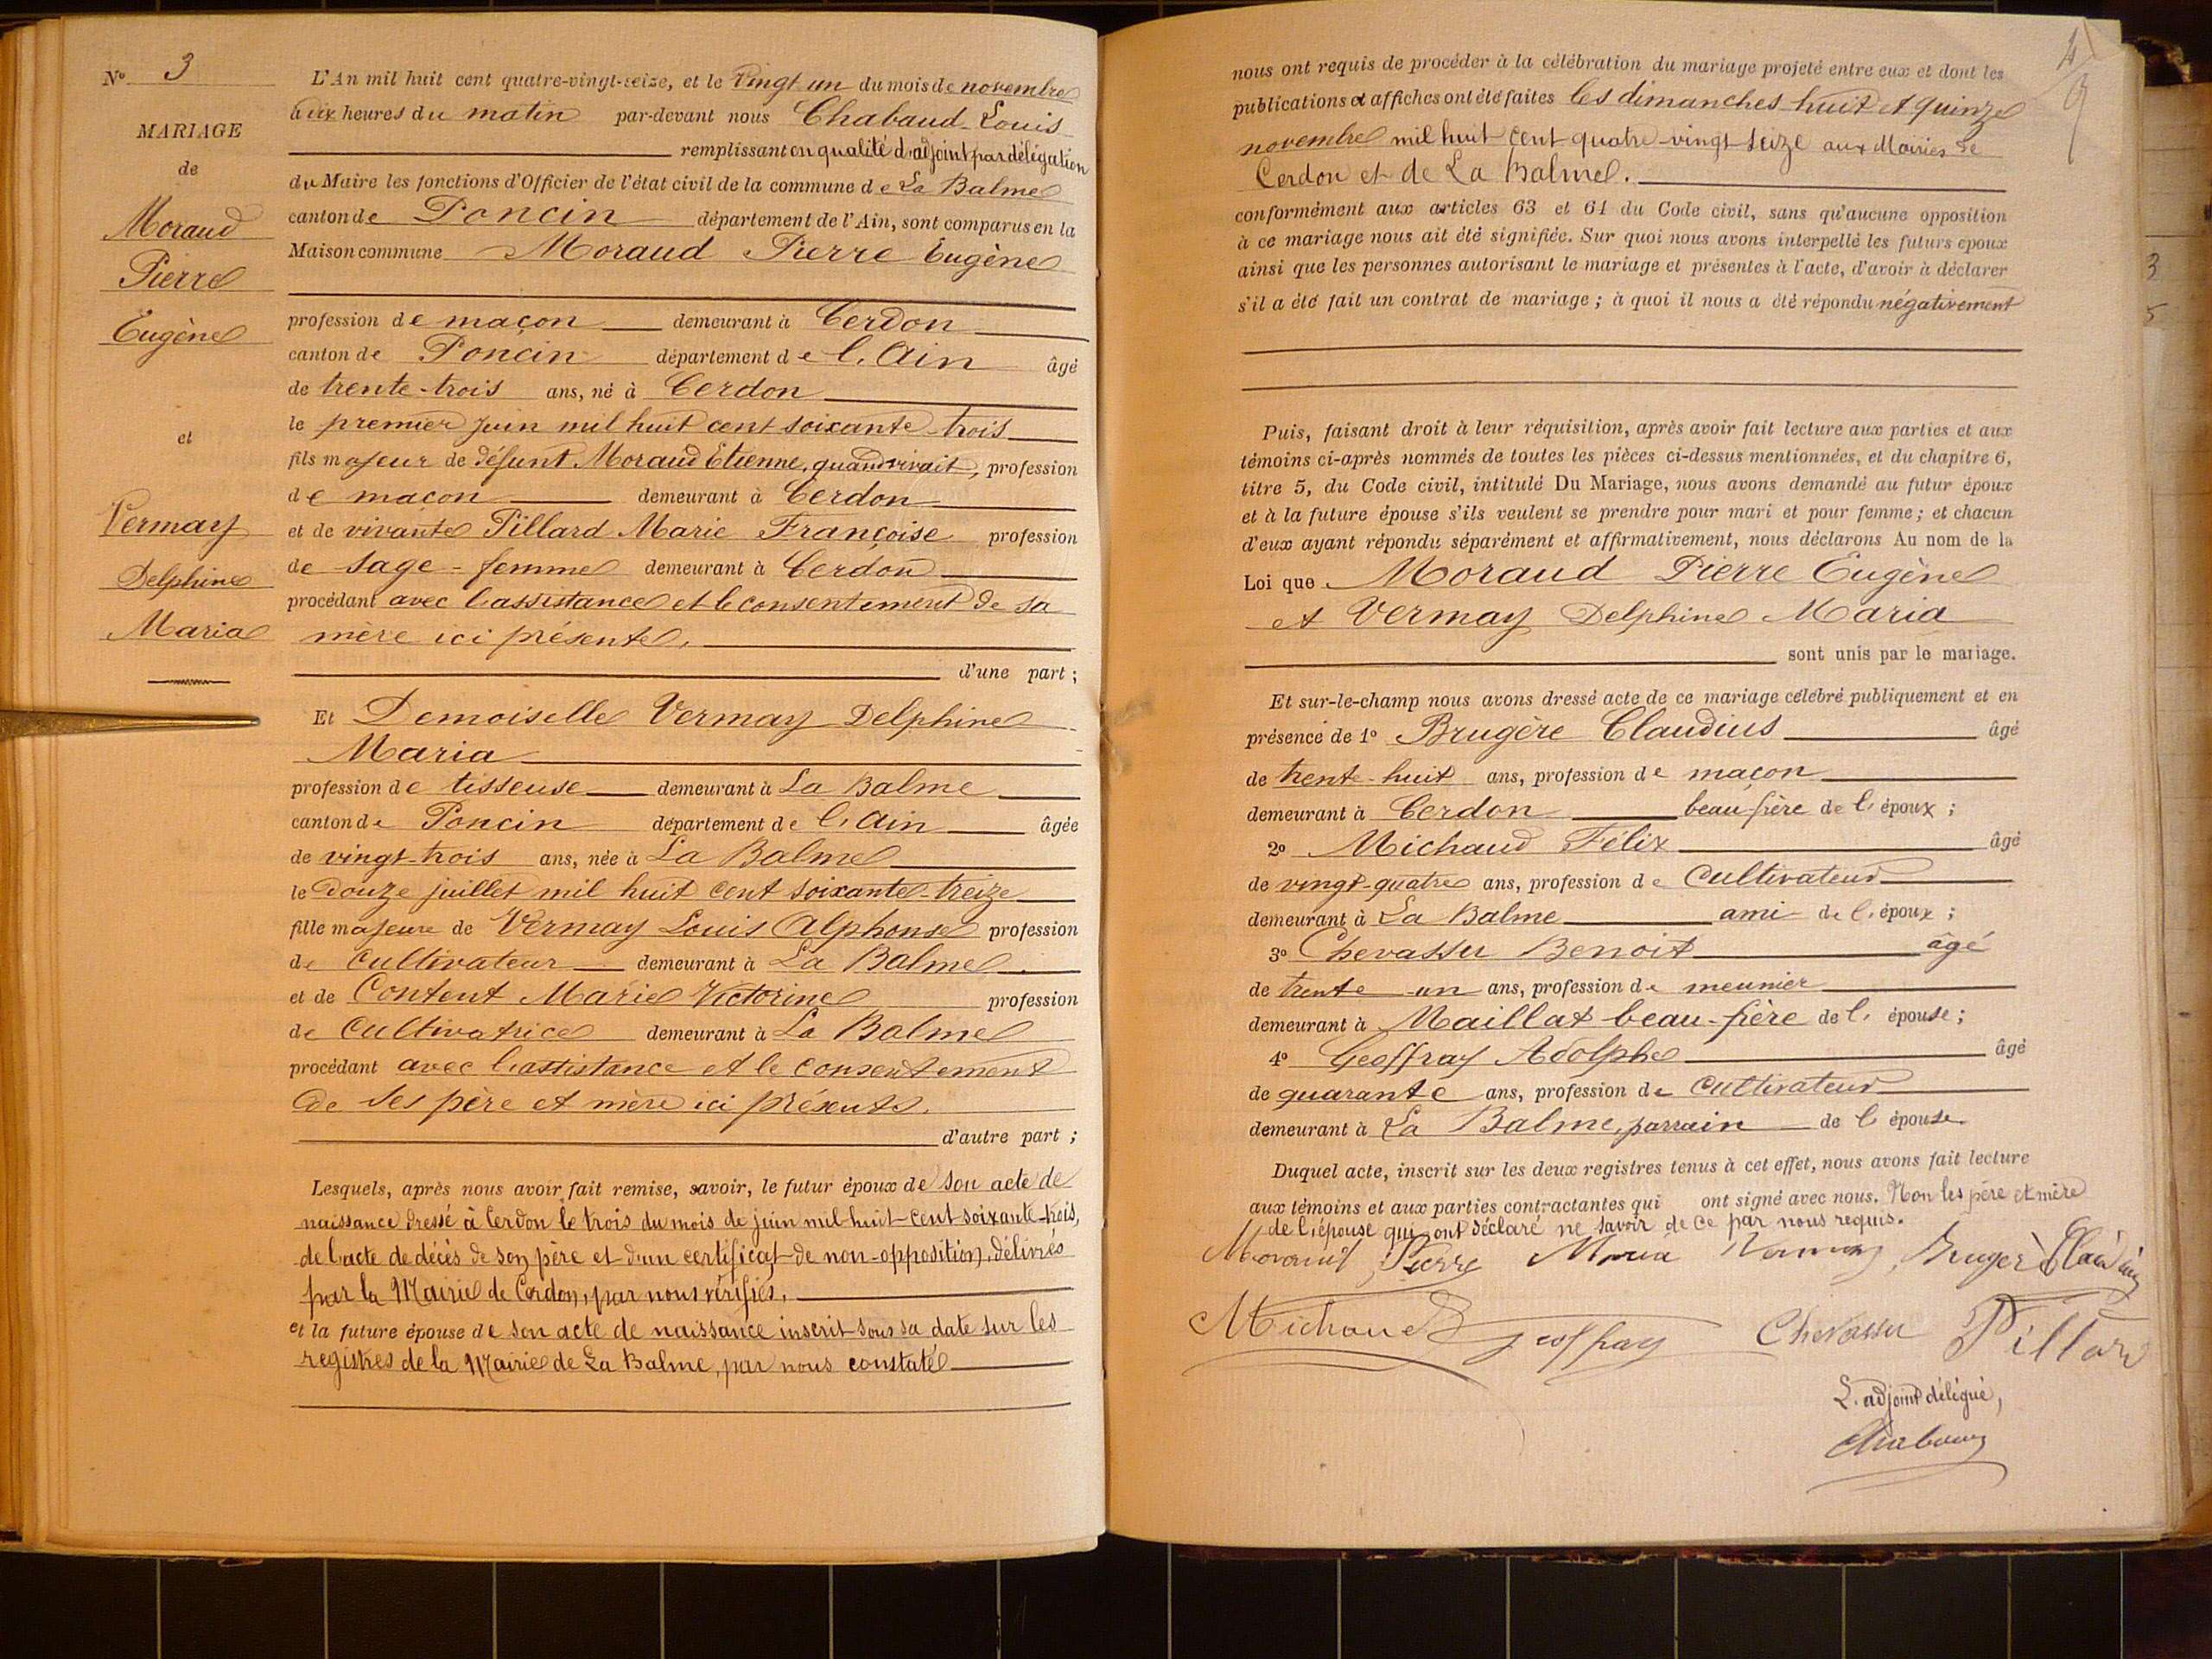 N° 3
MARIAGE
de
Moraud
Pierre
Eugène
et
Vermay
Delphine
Maria
L'An mil huit cent quatre-vingt-seize, et le Vingt un du mois de novembre
à dix heures du matin par-devant nous Chabaud Louis
remplissant en qualité d'adjoint par délégation
du Maire les fonctions d'Officier de l'état civil de la commune de La Balme
canton de Poncin département de l'Ain, sont comparus en la
Maison commune Moraud Pierre Eugène
profession de maçon demeurant à Cerdon
canton de Poncin département de l'Ain âgé
de trente-trois ans, né à Cerdon
le premier Juin mil huit cent soixante-trois
fils majeur de défunt Moraud Etienne, quand vivait, profession
de maçon demeurant à Cerdon
et de vivante Pillard Marie Françoise profession
de sage-femme demeurant à Cerdon
procédant avec l'assistance et le consentement de sa
mère ici présente.
d'une part ;
Et Demoiselle Vermay Delphine
Maria
profession de tisseuse demeurant à La Balme
canton de Poncin département de l'Ain âgée
de vingt-trois ans, née à La Balme
le Douze juillet mil huit cent soixante-treize
fille majeure de Vermay Louis Alphonse profession
de Cultivateur demeurant à La Balme
et de Content Marie Victorine profession
de Cultivatrice demeurant à La Balme
procédant avec l'assistance et le consentement
de ses père et mère ici présents.
d'autre part ;
Lesquels, après nous avoir fait remise, savoir, le futur époux de son acte de
naissance dressé à Cerdon le trois du mois de juin mil-huit-cent-soixante-trois,
de l'acte de décès de son père et d'un certificat de non-opposition, délivrés
par la Mairie de Cerdon, par nous vérifiés,
et la future épouse de son acte de naissance inscrit sous sa date sur les
registres de la Mairie de La Balme, par nous constaté
nous ont requis de procéder à la célébration du mariage projeté entre eux et dont les
publications et affiches ont été faites les dimanches huit et quinze
novembre mil huit cent quatre-vingt seize aux Mairies de
Cerdon et de La Balme.
conformément aux articles 63 et 64 du Code civil, sans qu'aucune opposition
à ce mariage nous ait été signifiée. Sur quoi nous avons interpellé les futurs époux
ainsi que les personnes autorisant le mariage et présentes à l'acte, d'avoir à déclarer
s'il a été fait un contrat de mariage ; à quoi il nous a été répondu négativement
Puis, faisant droit à leur réquisition, après avoir fait lecture aux parties et aux
témoins ci-après nommés de toutes les pièces ci-dessus mentionnées, et du chapitre 6,
titre 5, du Code civil, intitulé Du Mariage, nous avons demandé au futur époux
et à la future épouse s'ils veulent se prendre pour mari et pour femme ; et chacun
d'eux ayant répondu séparément et affirmativement, nous déclarons Au nom de la
Loi que Moraud Pierre Eugène
et Vermay Delphine Maria
sont unis par le mariage.
Et sur-le-champ nous avons dressé acte de ce mariage célébré publiquement et en
présence de 1° Brugère Claudius âgé
de trente-huit ans, profession de maçon
demeurant à Cerdon beau-frère de l'époux ;
2° Michaud Félix âgé
de vingt-quatre ans, profession de Cultivateur
demeurant à La Balme ami de l'époux ;
3° Chevassu Benoit âgé
de trente-un ans, profession de meunier
demeurant à Maillat beau-frère de l'épouse ;
4° Geoffray Adolphe âgé
de quarante ans, profession de Cultivateur
demeurant à La Balme, parrain de l'épouse.
Duquel acte, inscrit sur les deux registres tenus à cet effet, nous avons fait lecture
aux témoins et aux parties contractantes qui ont signé avec nous. Non les père et mère
de l'épouse qui ont déclaré ne savoir de ce par nous requis.
Moraud Pierre Maria Vermay Bruger Claudius
Michaud Geoffray Chevassu Pillard
L'adjoint délégué,
Chabaud
3
5